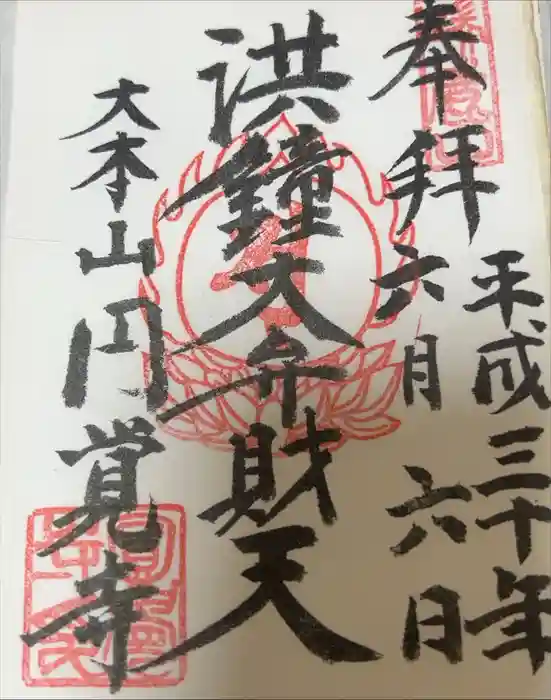 奉拝
平成三十年
六月六日
洪鐘大弁財天
大本山円覚寺